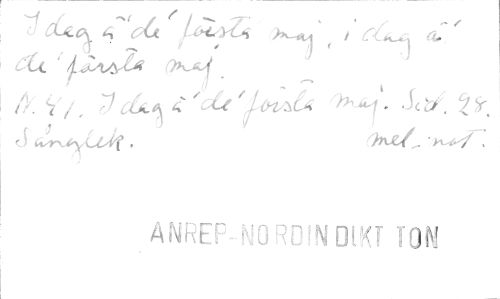 I dag ä' de' första maj, i dag ä'
de' första maj.
N. 41. I dag ä' de' första maj. Sid. 28.
Sånglek. mel. not.
ANREP-NORDIN DIKT TON